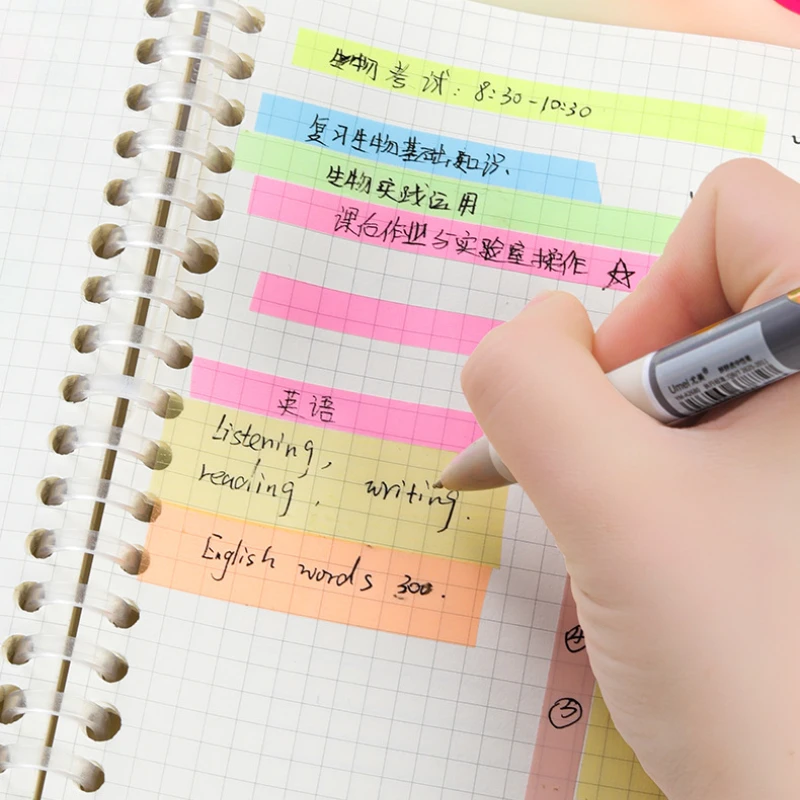 生物考试：8:30-10:30
复习生物基础知识、
生物实践运用
课后作业与实验室操作 ☆
英语
Listening,
reading, writing.
English words 300.
④
③
Umei 尤美®